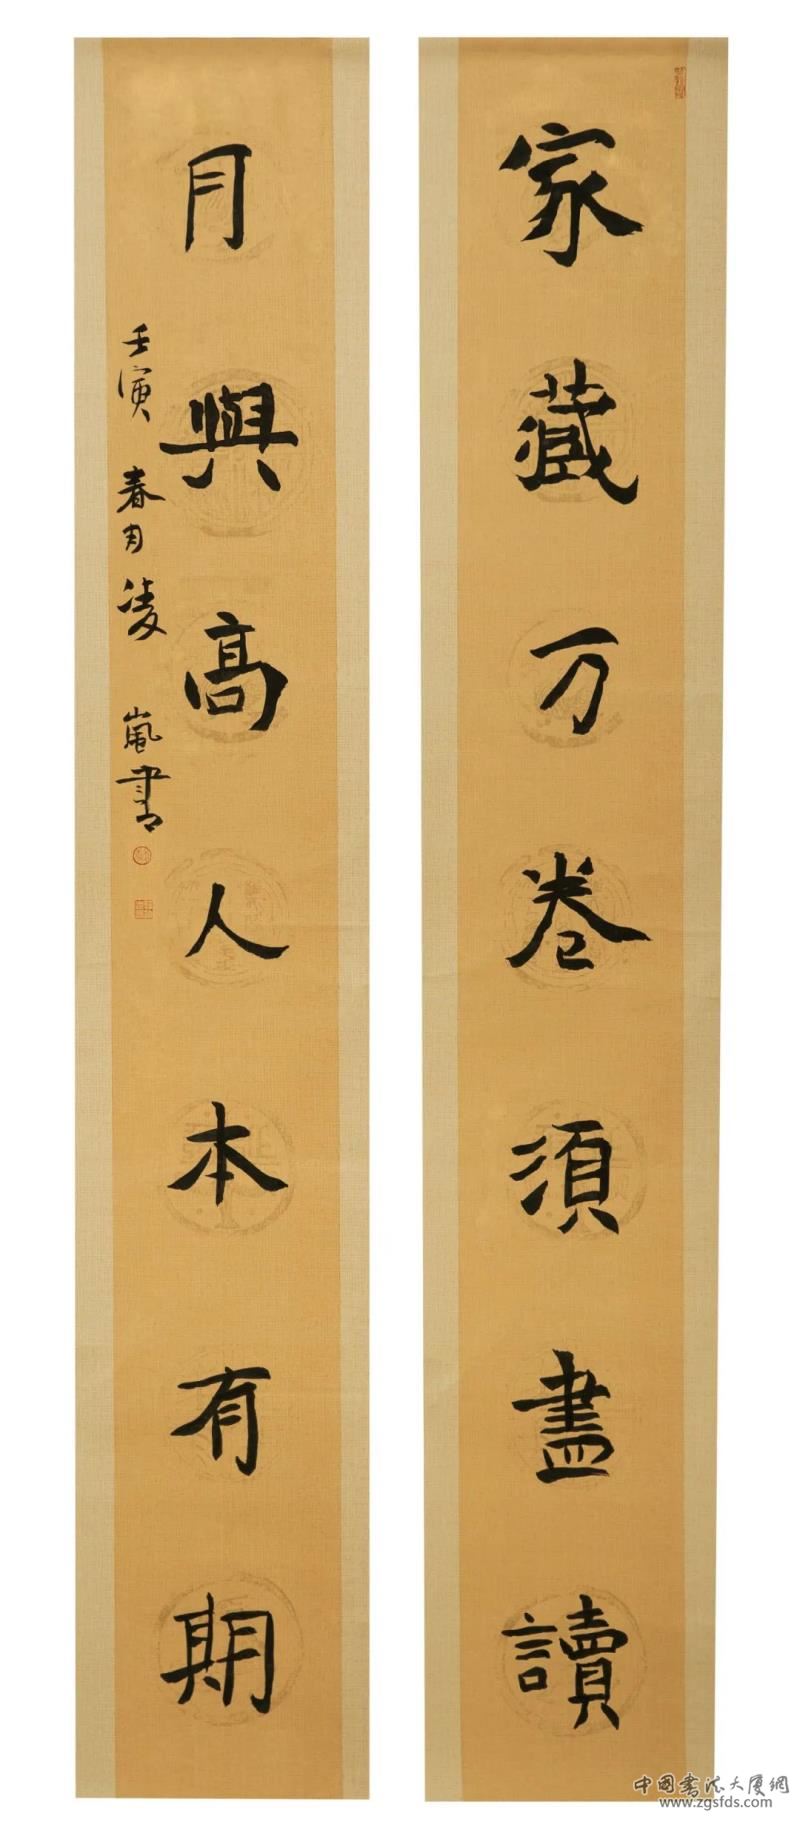 家藏万卷須盡讀
月與高人本有期
壬寅春月凌嵐書
中國書法大厦網
www.zgsfds.com